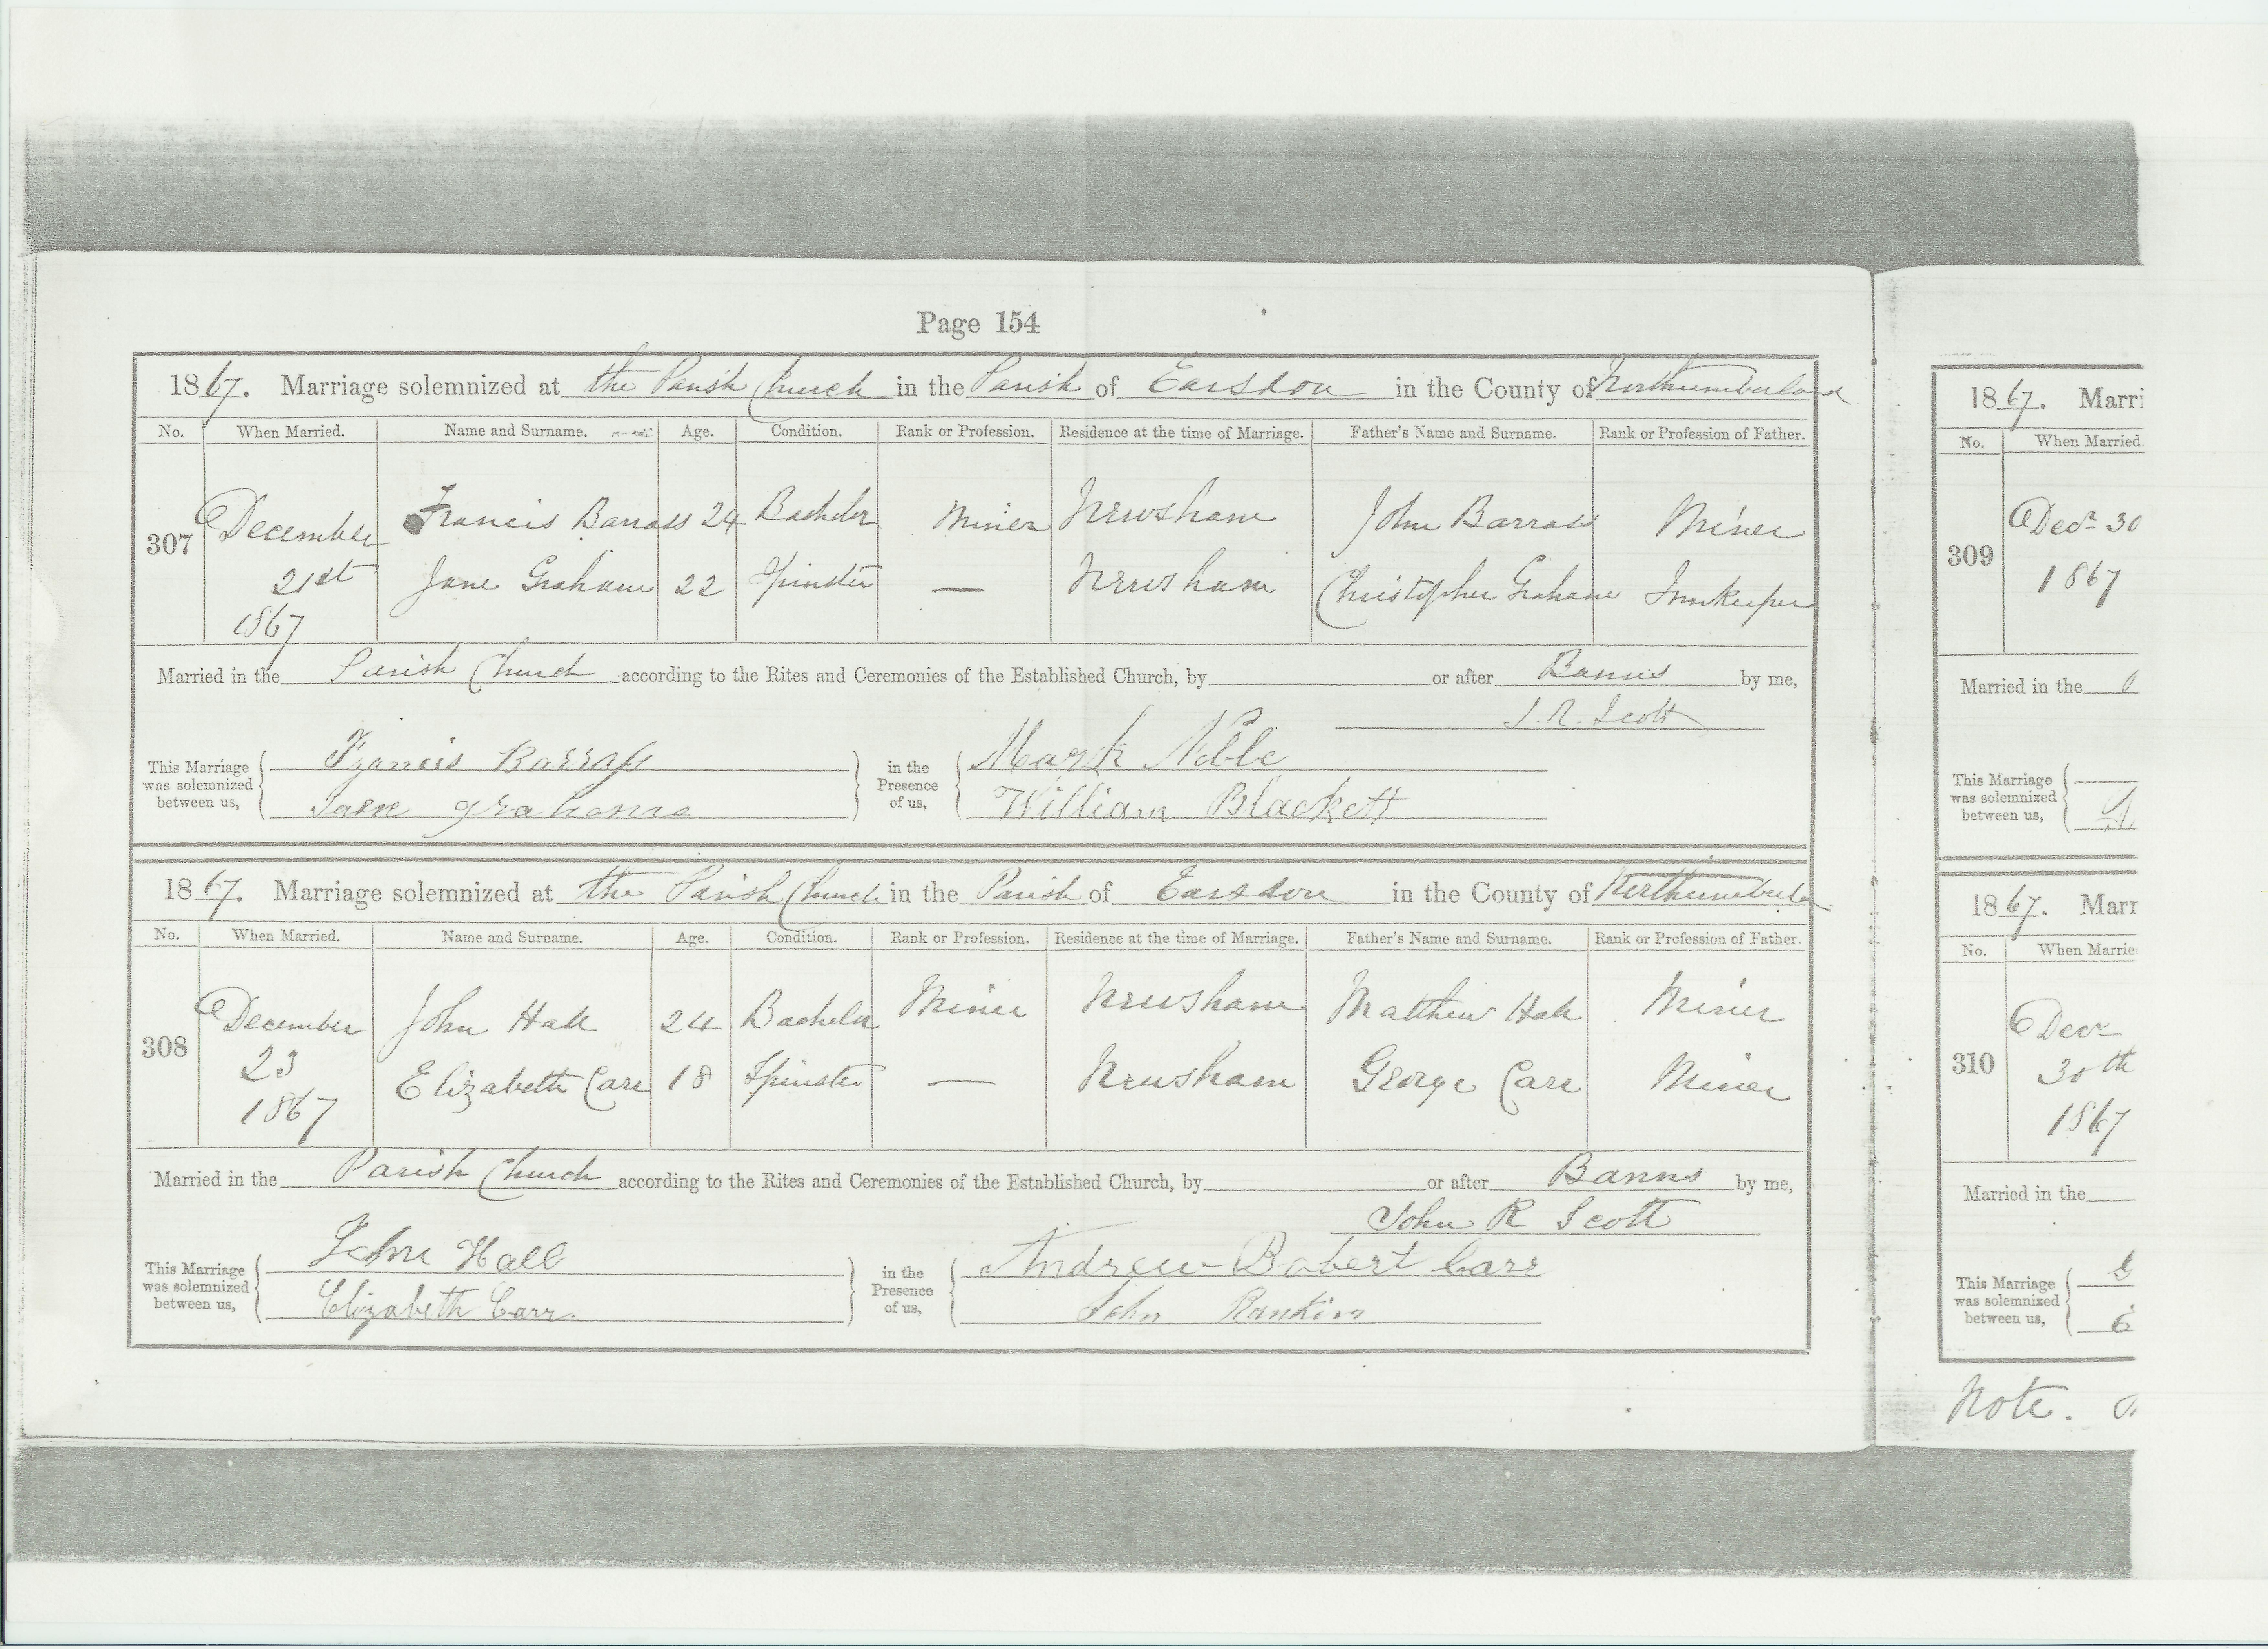 Page 154
1867. Marriage solemnized at the Parish Church in the Parish of Earsdon in the County of Northumberland
No. When Married. Name and Surname. Age. Condition. Rank or Profession. Residence at the time of Marriage. Father's Name and Surname. Rank or Profession of Father.
307 December 21st 1867
Francis Barrass 24 Bachelor Miner Newsham John Barrass Miner
Jane Grahame 22 Spinster — Newsham Christopher Grahame Innkeeper
Married in the Parish Church according to the Rites and Ceremonies of the Established Church, by or after Banns by me,
J. R. Scott
This Marriage was solemnized between us, Francis Barrass in the Presence of us, Mark Noble
Jane grahame William Blackett
1867. Marriage solemnized at the Parish Church in the Parish of Earsdon in the County of Northumberland
No. When Married. Name and Surname. Age. Condition. Rank or Profession. Residence at the time of Marriage. Father's Name and Surname. Rank or Profession of Father.
308 December 23 1867
John Hall 24 Bachelor Miner Newsham Matthew Hall Miner
Elizabeth Carr 18 Spinster — Newsham George Carr Miner
Married in the Parish Church according to the Rites and Ceremonies of the Established Church, by or after Banns by me,
John R Scott
This Marriage was solemnized between us, John Hall in the Presence of us, Andrew Robert Carr
Elizabeth Carr. John Rankin
1867. Marri
No. When Married.
309 Decr 30
1867
Married in the
This Marriage
was solemnized
between us,
1867. Marr
No. When Marrie
310 Decr
30th
1867
Married in the
This Marriage
was solemnized
between us,
Note.